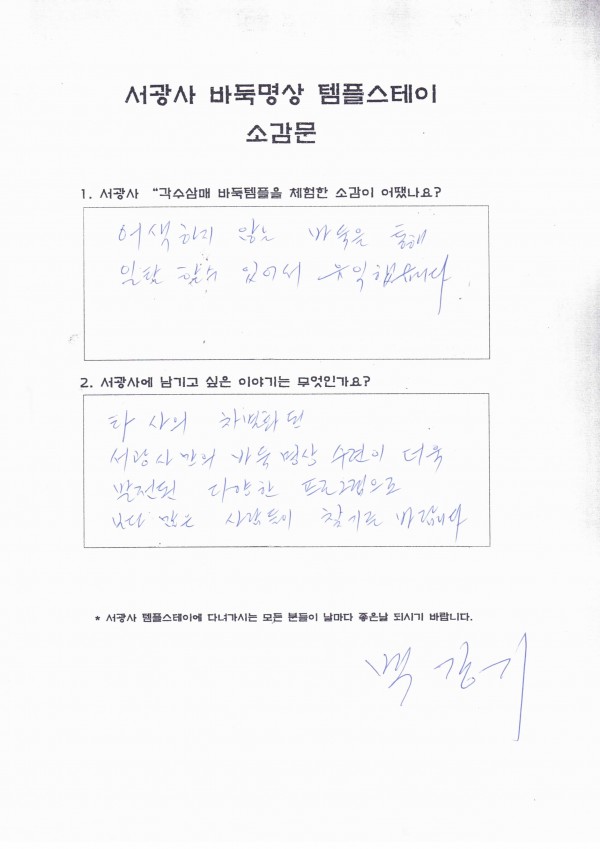 서광사 바둑명상 템플스테이
소감문
1. 서광사 “각수삼매 바둑템플을 체험한 소감이 어땠나요?
어색하지 않는 바둑을 통해
일탈 할수 있어서 유익했습니다
2. 서광사에 남기고 싶은 이야기는 무엇인가요?
타 사의 차별화된
서광사만의 바둑 명상 수련이 더욱
발전된 다양한 프로그램으로
보다 많은 사람들이 찾기를 바랍니다
* 서광사 템플스테이에 다녀가시는 모든 분들이 날마다 좋은날 되시기 바랍니다.
백 기